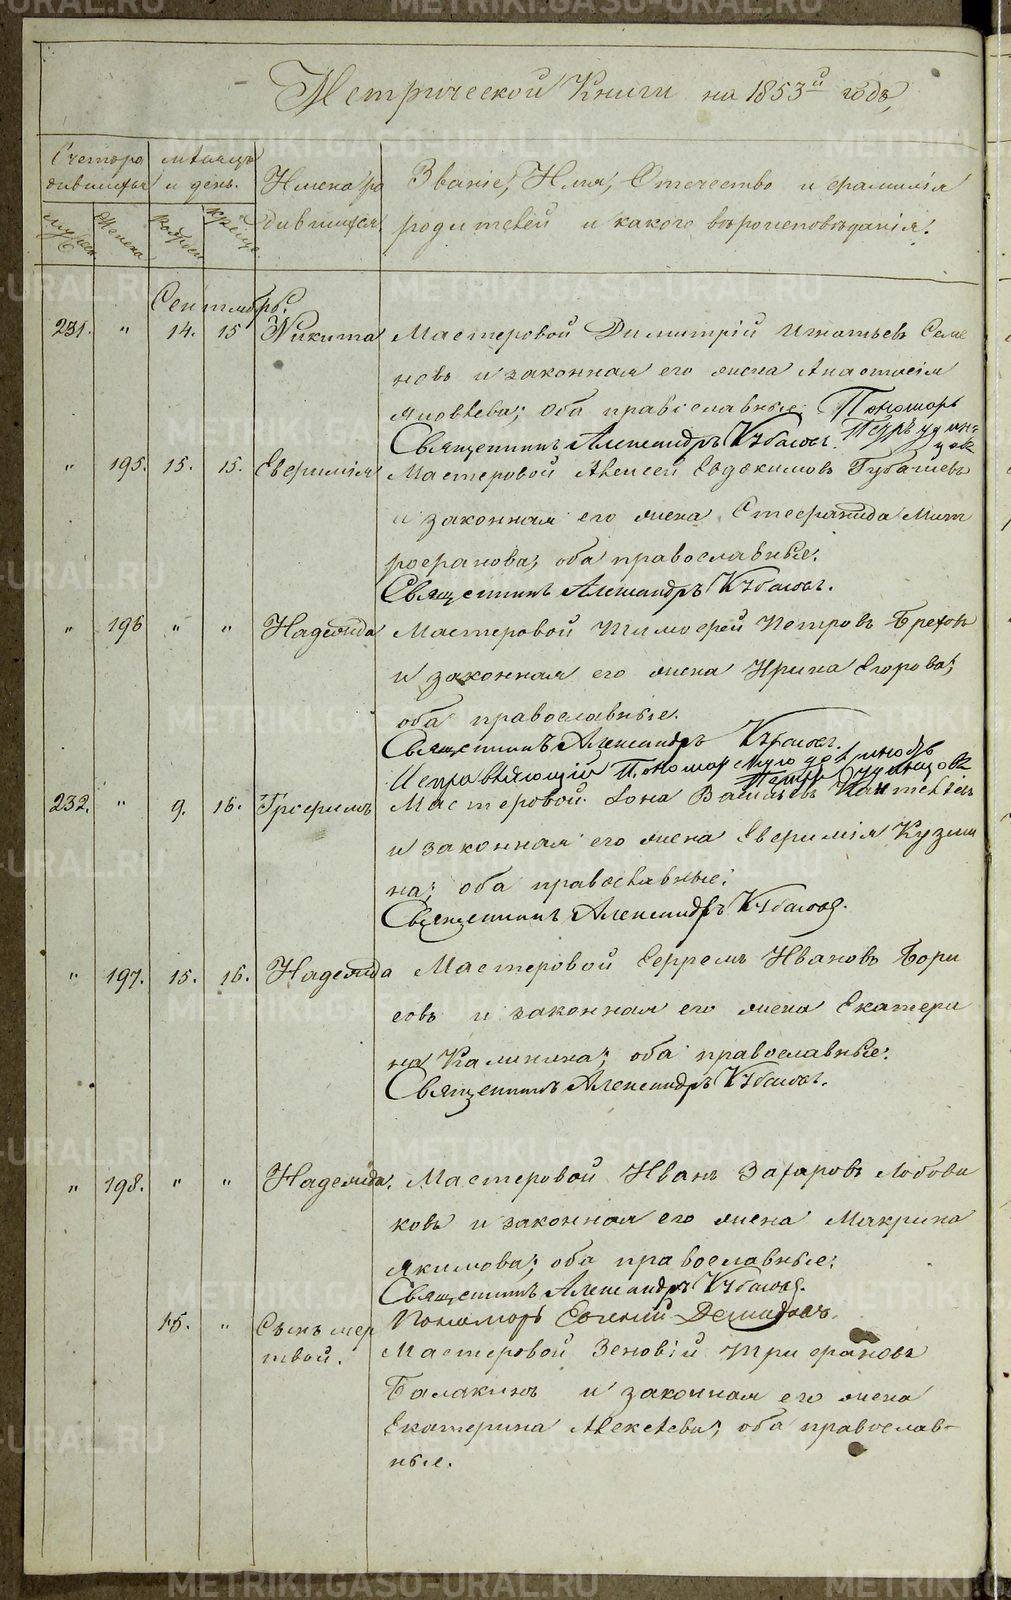 Метрической Книги на 1853й годъ,
Счетъ ро
дившихся
мѣсяцъ
и день.
Имена ро
дившихся.
Званіе, Имя, Отчество и фамилія
родителей и какого вѣроисповѣданія.
мужеск
Женска
рожден
крещен
Сентябрь.
231. " 14. 15 Никита Мастеровой Димитрій Игнатьевъ Семе
новъ и законная его жена Анастасія
Яковлева; оба православные. Пономарь
Священникъ Александръ
" 195. 15. 15. Евфимія Мастеровой Алексей Евдокимовъ Губачевъ
и законная его жена Стефанида Мит
рофанова; оба православные.
Священникъ Александръ
" 196 " " Надежда Мастеровой Тимофей Петровъ Брехов
и законная его жена Ирина Егорова;
оба православные.
Священникъ Александръ
Исправляющій Пономарскую должность
232. " 9. 16. Трофимъ Мастеровой Iона Васильевъ
и законная его жена Евфимія Кузми
на; оба православные.
Священникъ Александръ
" 197. 15. 16. Надежда Мастеровой Ефремъ Ивановъ Бори
совъ и законная его жена Екатери
на Калинина; оба православные.
Священникъ Александръ
" 198. " " Надежда. Мастеровой Иванъ Захаровъ Лобови
ковъ и законная его жена Макрина
Якимова; оба православные.
Священникъ Александръ
Пономарь Евгеній
15. " Сынъ мер
твой.
Мастеровой Зеновій Трифановъ
Балакинъ и законная его жена
Екатерина Алексѣева; оба православ-
ные.
METRIKI.GASO-URAL.RU